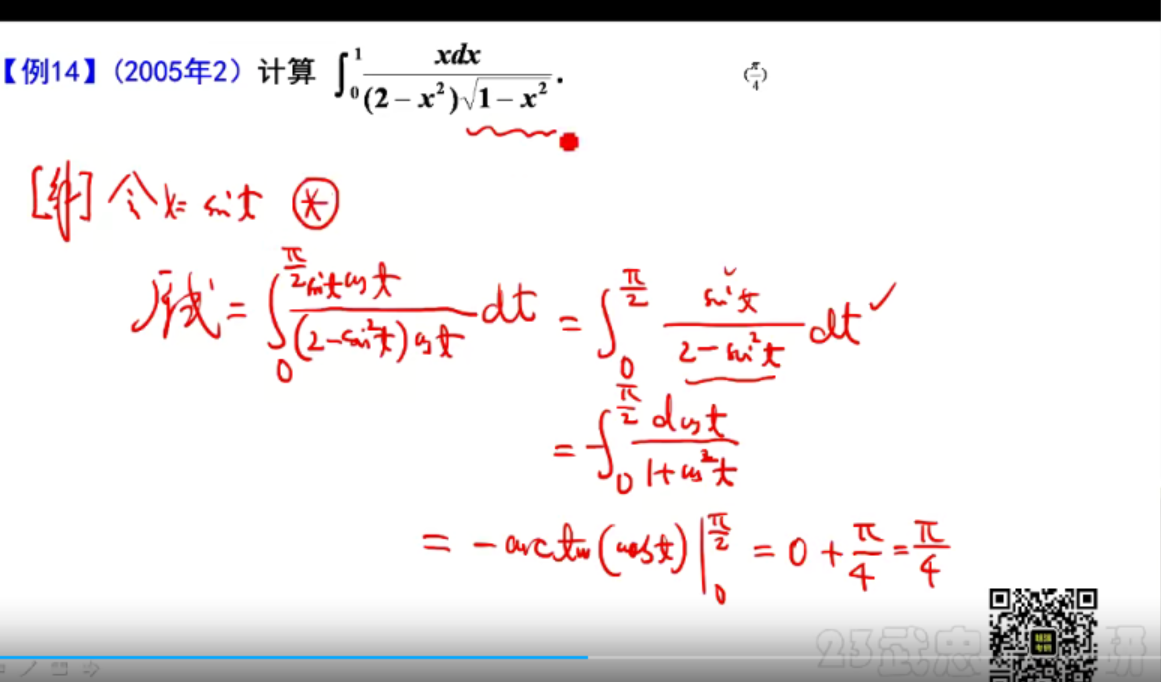 【例14】(2005年2) 计算 ∫₀¹ xdx / ((2 − x²)√(1 − x²)). (π/4)
[解] 令 x = sin t ⊛
原式 = ∫₀^{π/2} sin t cos t / ((2 − sin² t) cos t) dt = ∫₀^{π/2} sin t / (2 − sin² t) dt ✓
= −∫₀^{π/2} d cos t / (1 + cos² t)
= − arctan(cos t) |₀^{π/2} = 0 + π/4 = π/4
23武忠 研